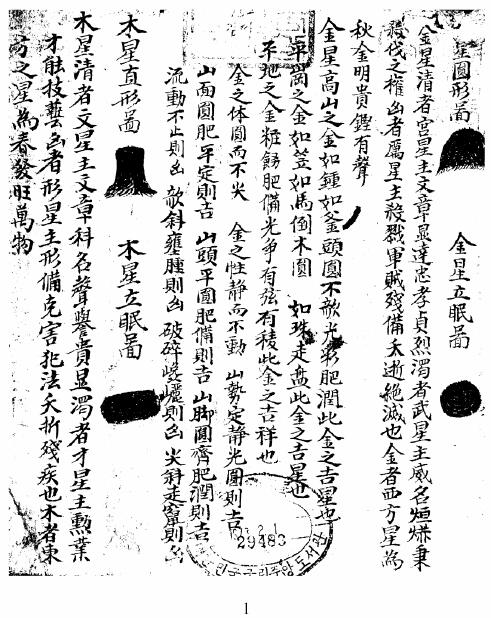 星圓形圖 金星立眠圖
金星清者官星主文章显達忠孝貞烈濁者武星主威名烜爀秉
殺伐之權凶者厲星主殺戮軍賊殘備夭逝絶滅也金者西方星為
秋金明貴鏗有聲
金星高山之金如鍾如釜頭圓不欹光彩肥潤此金之吉星也
平岡之金如笠如馬倒木圓 如珠走盘此金之吉星也
平地之金粧餙肥備光争有弦有稜此金之吉祥也
金之体圓而不尖 金之性静而不動 山勢定静光圓則吉
山面圓肥平定則吉 山頭平圓肥備則吉 山脚圓齊肥潤則吉
流動不止則凶 欹斜壅腫則凶 破碎巉巗則凶 尖斜走竄則凶
木星直形圖 木星立眠圖
木星清者文星主文章科名聲譽貴显濁者才星主勲業
才能技藝凶者形星主形備克害犯法夭折殘疾也木者東
方之星為春發旺萬物
29483
1